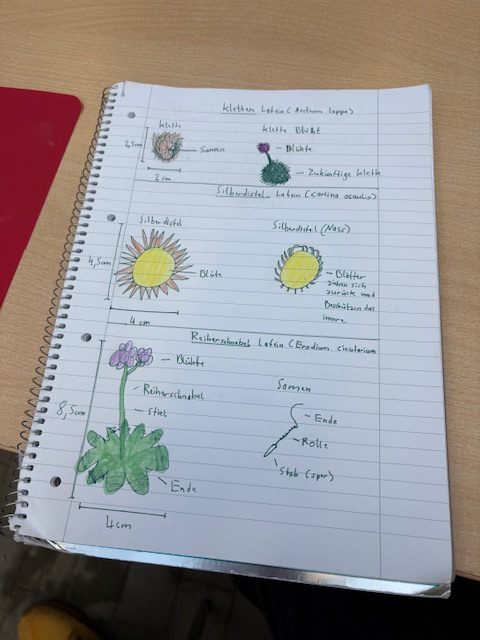 Kletten Latein (Arctium Lappa)
Klette
2,5cm
Samen
2 cm
Klette Blüht
Blühte
Zukünftige Klette
Silberdistel Latein (Carlina acaulis)
Silberdistel
4,5cm
Blüte
4 cm
Silberdistel (Nass)
Blätter
ziehen sich
zurück und
Beschützen das
innere.
Reiherschnabel Latein (Erodium cicutarium
Blühte
Reiherschnabel
Stiel
8,5cm
Ende
4cm
Samen
Ende
Rolle
Stab (sper)